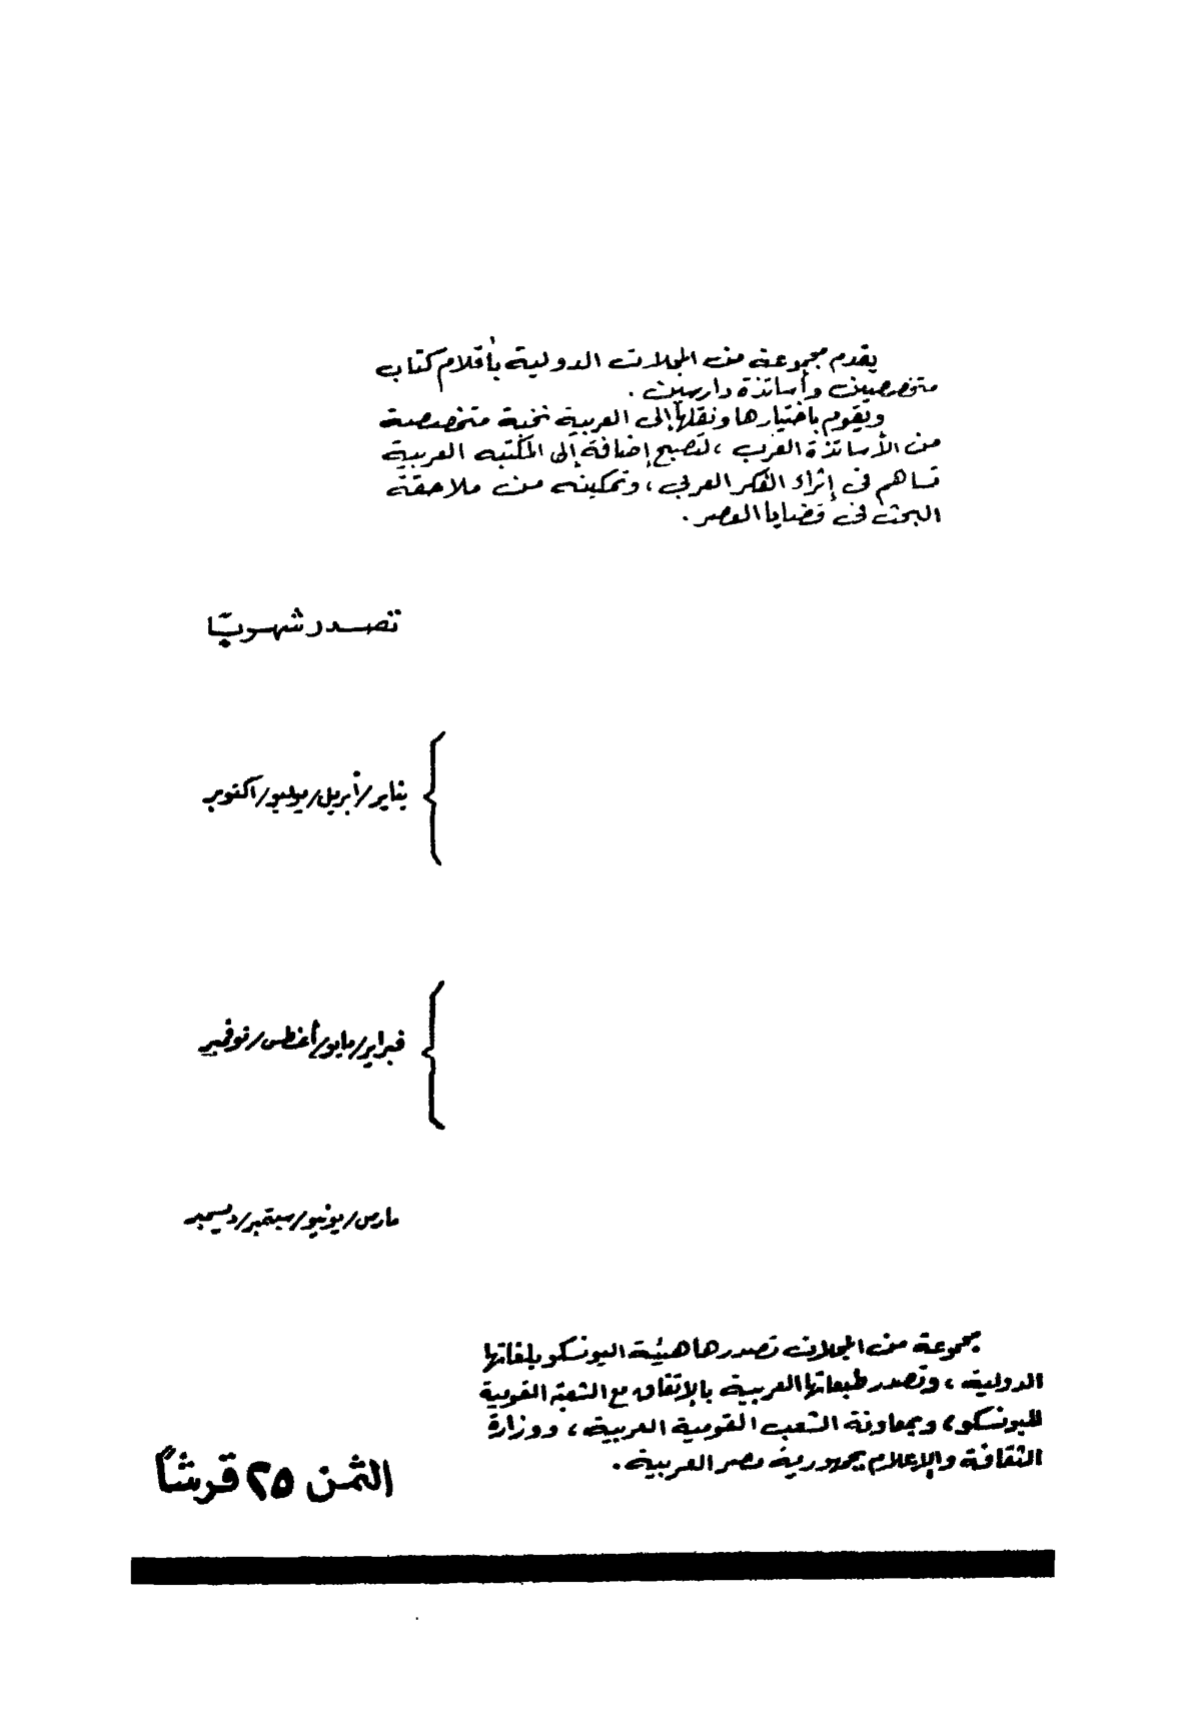 يقدم مجموعة من المجلات الدولية بأقلام كتاب
متخصصين وأساتذة دارسين .
ويقوم باختيارها ونقلها إلى العربية نخبة متخصصة
من الأساتذة العرب ، لتصبح إضافة إلى المكتبة العربية
تساهم فى إثراء الفكر العربى ، وتمكينه من ملاحقة
البحث فى قضايا العصر .
تصدر شهريًا
يناير/أبريل/يوليو/أكتوبر
فبراير/مايو/أغطس/نوفمبر
مارس/يونيو/سبتمبر/ديسمبر
مجموعة من المجلات تصدرها هيئة اليونسكو بلغاتها
الدولية ، وتصدر طبعاتها العربية بالإتفاق مع الشعبة القومية
لليونسكو ، وبمعاونة الشعب القومية العربية ، ووزارة
الثقافة والإعلام بجمهورية مصر العربية .
الثمن ٢٥ قرشاً